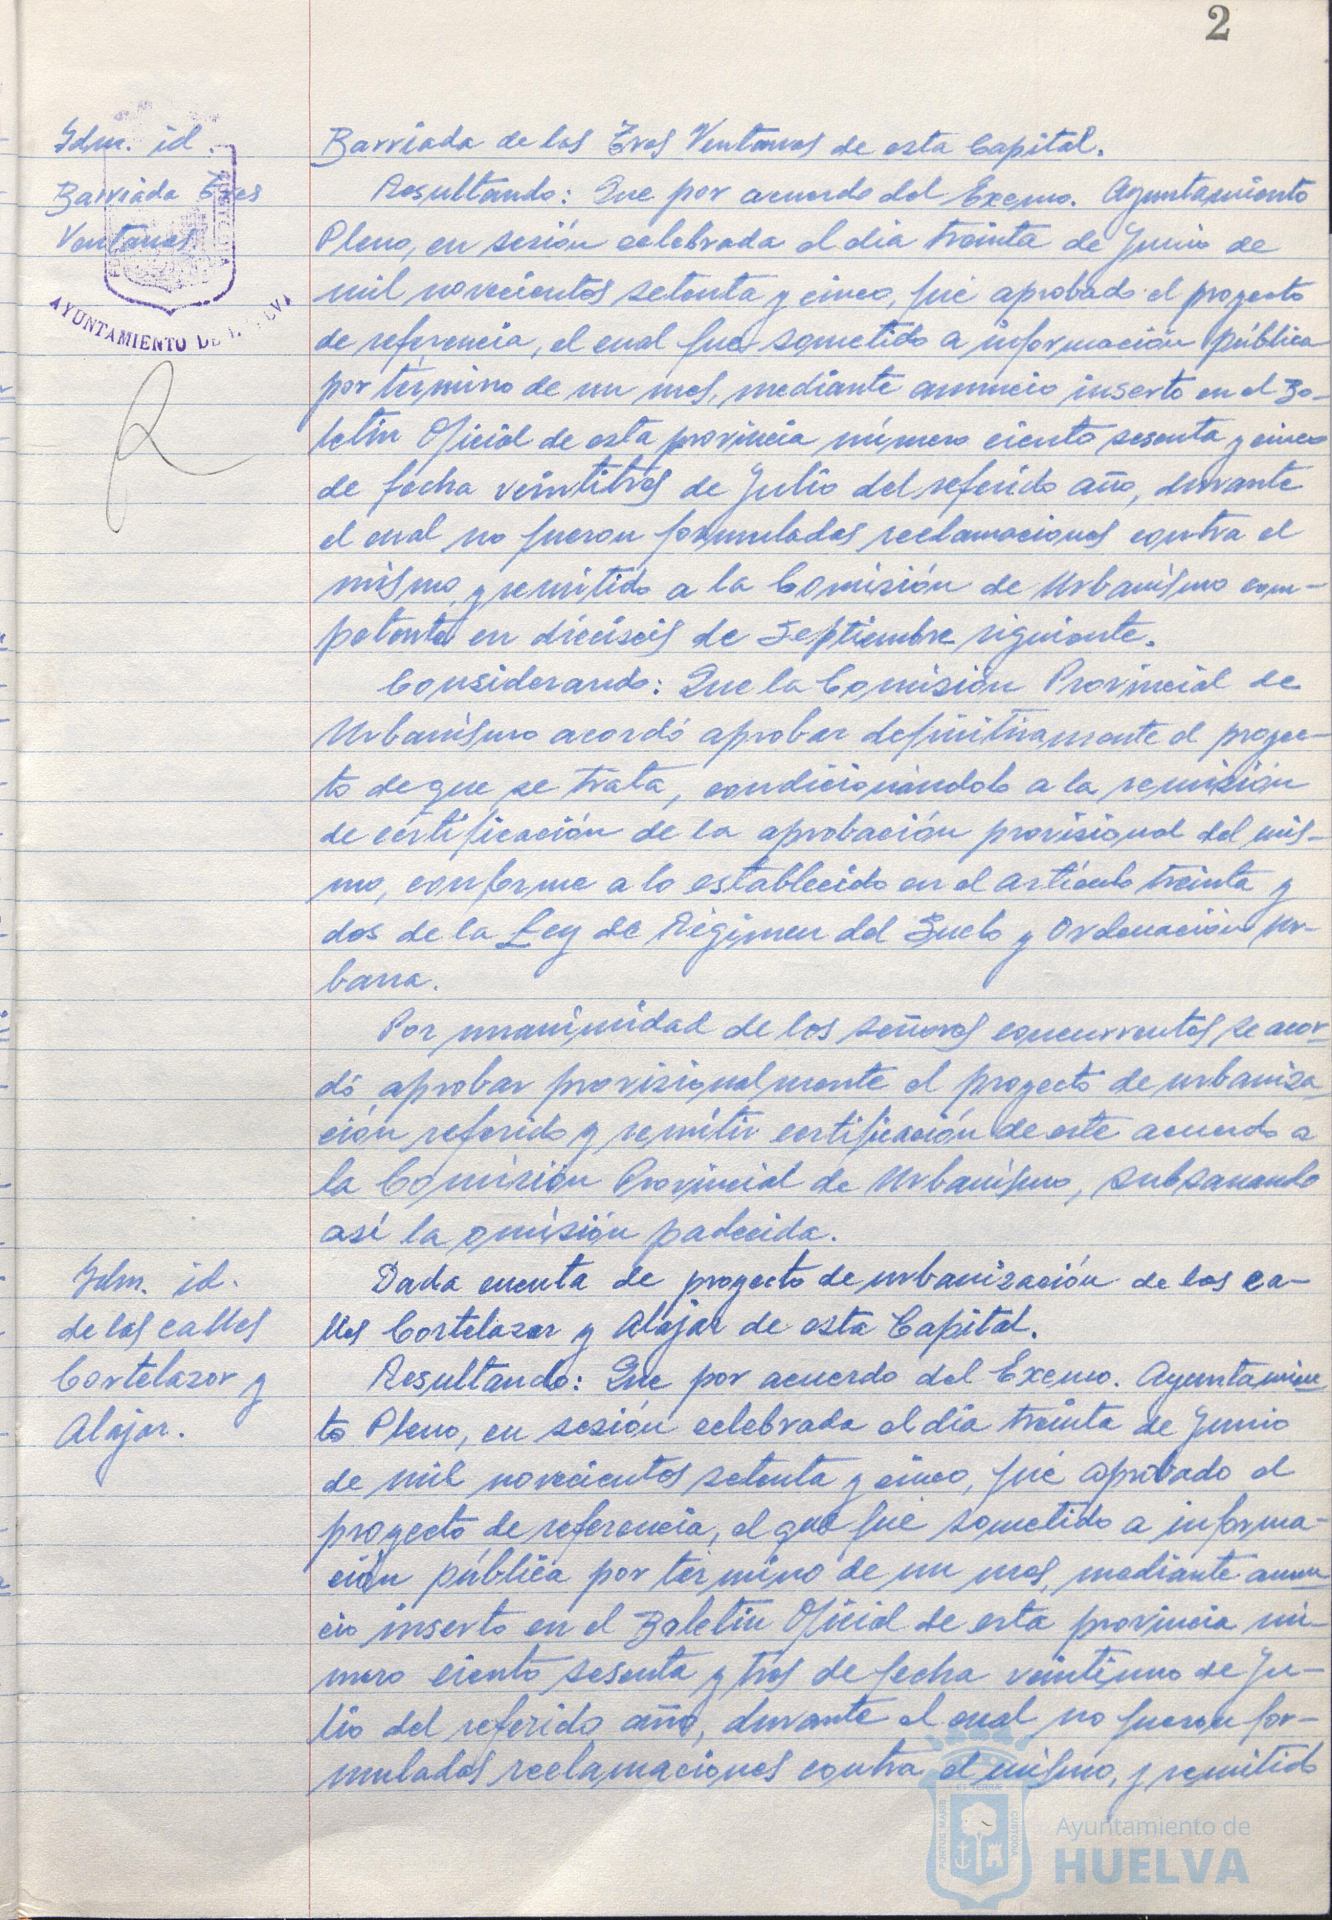 2
Idm. id.
Barriada Tres
Ventanas.
AYUNTAMIENTO DE HUELVA
Barriada de las Tres Ventanas de esta Capital.
Resultando: Que por acuerdo del Excmo. Ayuntamiento
Pleno, en sesión celebrada el dia treinta de Junio de
mil novecientos setenta y cinco, fué aprobado el proyecto
de referencia, el cual fué sometido a información pública
por término de un mes, mediante anuncio inserto en el Bo-
letin Oficial de esta provincia número ciento sesenta y cinco
de fecha veintitrés de Julio del referido año, durante
el cual no fueron formuladas reclamaciones contra el
mismo, y remitido a la Comisión de Urbanismo com-
petente en dieciseis de Septiembre siguiente.
Considerando: Que la Comisión Provincial de
Urbanismo acordó aprobar definitivamente el proyec-
to de que se trata, condicionándolo a la remisión
de certificación de la aprobación provisional del mis-
mo, conforme a lo establecido en el artículo treinta y
dos de la Ley de Régimen del Suelo y Ordenación Ur-
bana.
Por unanimidad de los señores concurrentes se acor-
dó aprobar provisionalmente el proyecto de urbaniza
ción referido y remitir certificación de este acuerdo a
la Comisión Provincial de Urbanismo, subsanando
así la omisión padecida.
Idm. id.
de las calles
Cortelazor y
Alajar.
Dada cuenta de proyecto de urbanización de las ca-
lles Cortelazor y Alajar de esta Capital.
Resultando: Que por acuerdo del Excmo. Ayuntamien
to Pleno, en sesión celebrada el dia treinta de Junio
de mil novecientos setenta y cinco, fué aprobado el
proyecto de referencia, el que fué sometido a informa-
ción pública por término de un mes, mediante anun
cio inserto en el Boletin Oficial de esta provincia nú-
mero ciento sesenta y tres de fecha veintiuno de Ju-
lio del referido año, durante el cual no fueron for-
muladas reclamaciones contra el mismo, y remitido
PORTUS MARIS
CUSTODIA
Ayuntamiento de
HUELVA